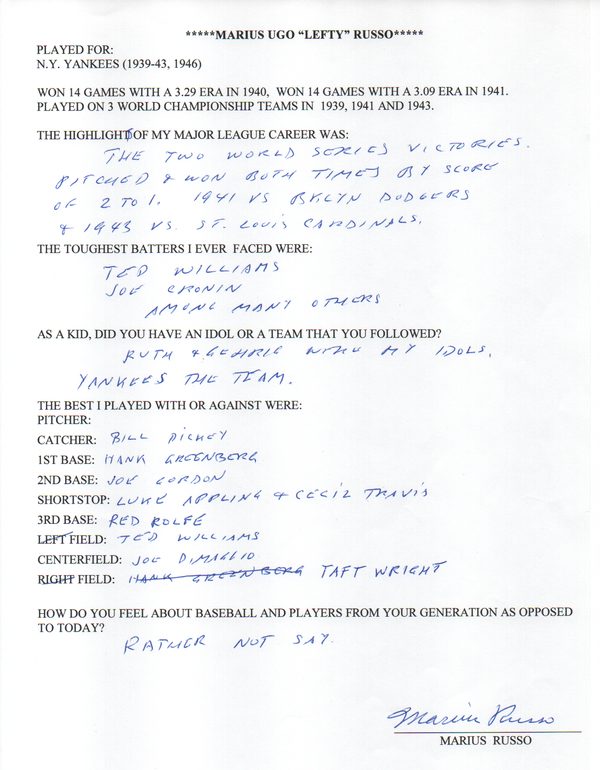 *****MARIUS UGO “LEFTY” RUSSO*****
PLAYED FOR:
N.Y. YANKEES (1939-43, 1946)
WON 14 GAMES WITH A 3.29 ERA IN 1940, WON 14 GAMES WITH A 3.09 ERA IN 1941.
PLAYED ON 3 WORLD CHAMPIONSHIP TEAMS IN 1939, 1941 AND 1943.
THE HIGHLIGHT OF MY MAJOR LEAGUE CAREER WAS:
THE TWO WORLD SERIES VICTORIES.
PITCHED & WON BOTH TIMES BY SCORE
OF 2 TO 1. 1941 VS BKLYN DODGERS
& 1943 VS. ST. LOUIS CARDINALS.
THE TOUGHEST BATTERS I EVER FACED WERE:
TED WILLIAMS
JOE CRONIN
AMONG MANY OTHERS
AS A KID, DID YOU HAVE AN IDOL OR A TEAM THAT YOU FOLLOWED?
RUTH & GEHRIG WERE MY IDOLS.
YANKEES THE TEAM.
THE BEST I PLAYED WITH OR AGAINST WERE:
PITCHER:
CATCHER: BILL DICKEY
1ST BASE: HANK GREENBERG
2ND BASE: JOE GORDON
SHORTSTOP: LUKE APPLING & CECIL TRAVIS
3RD BASE: RED ROLFE
LEFT FIELD: TED WILLIAMS
CENTERFIELD: JOE DIMAGGIO
RIGHT FIELD: HANK GREENBERG TAFT WRIGHT
HOW DO YOU FEEL ABOUT BASEBALL AND PLAYERS FROM YOUR GENERATION AS OPPOSED
TO TODAY?
RATHER NOT SAY.
Marius Russo
MARIUS RUSSO